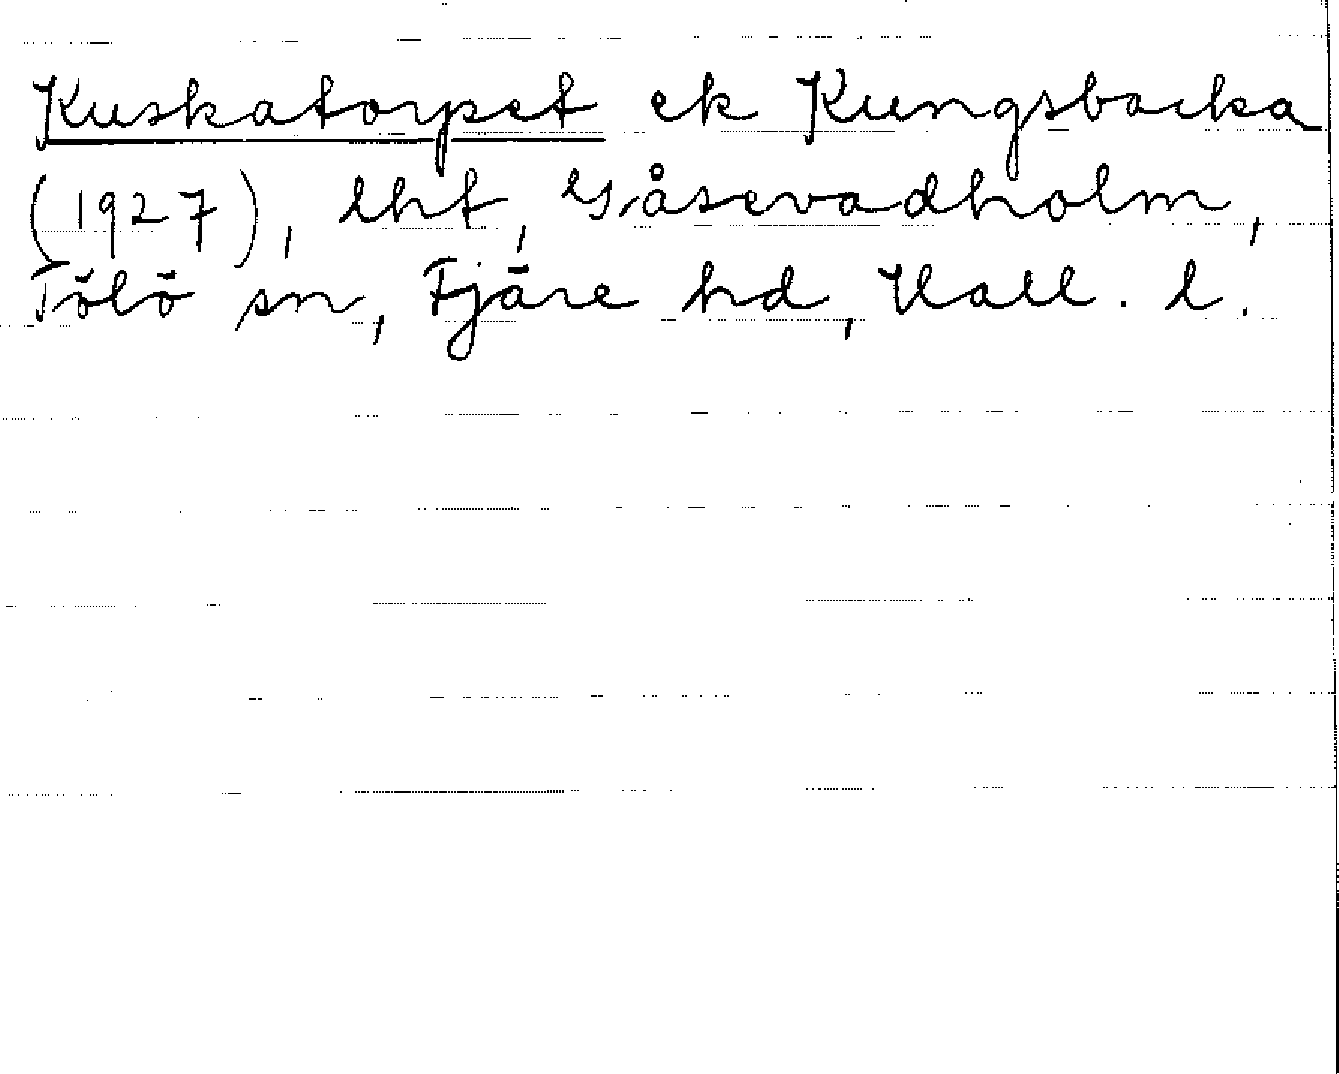 Kuskatorpet ek Kungsbacka
(1927), lht, Gåsevadholm,
Tölö sn, Fjäre hd, Hall. l.